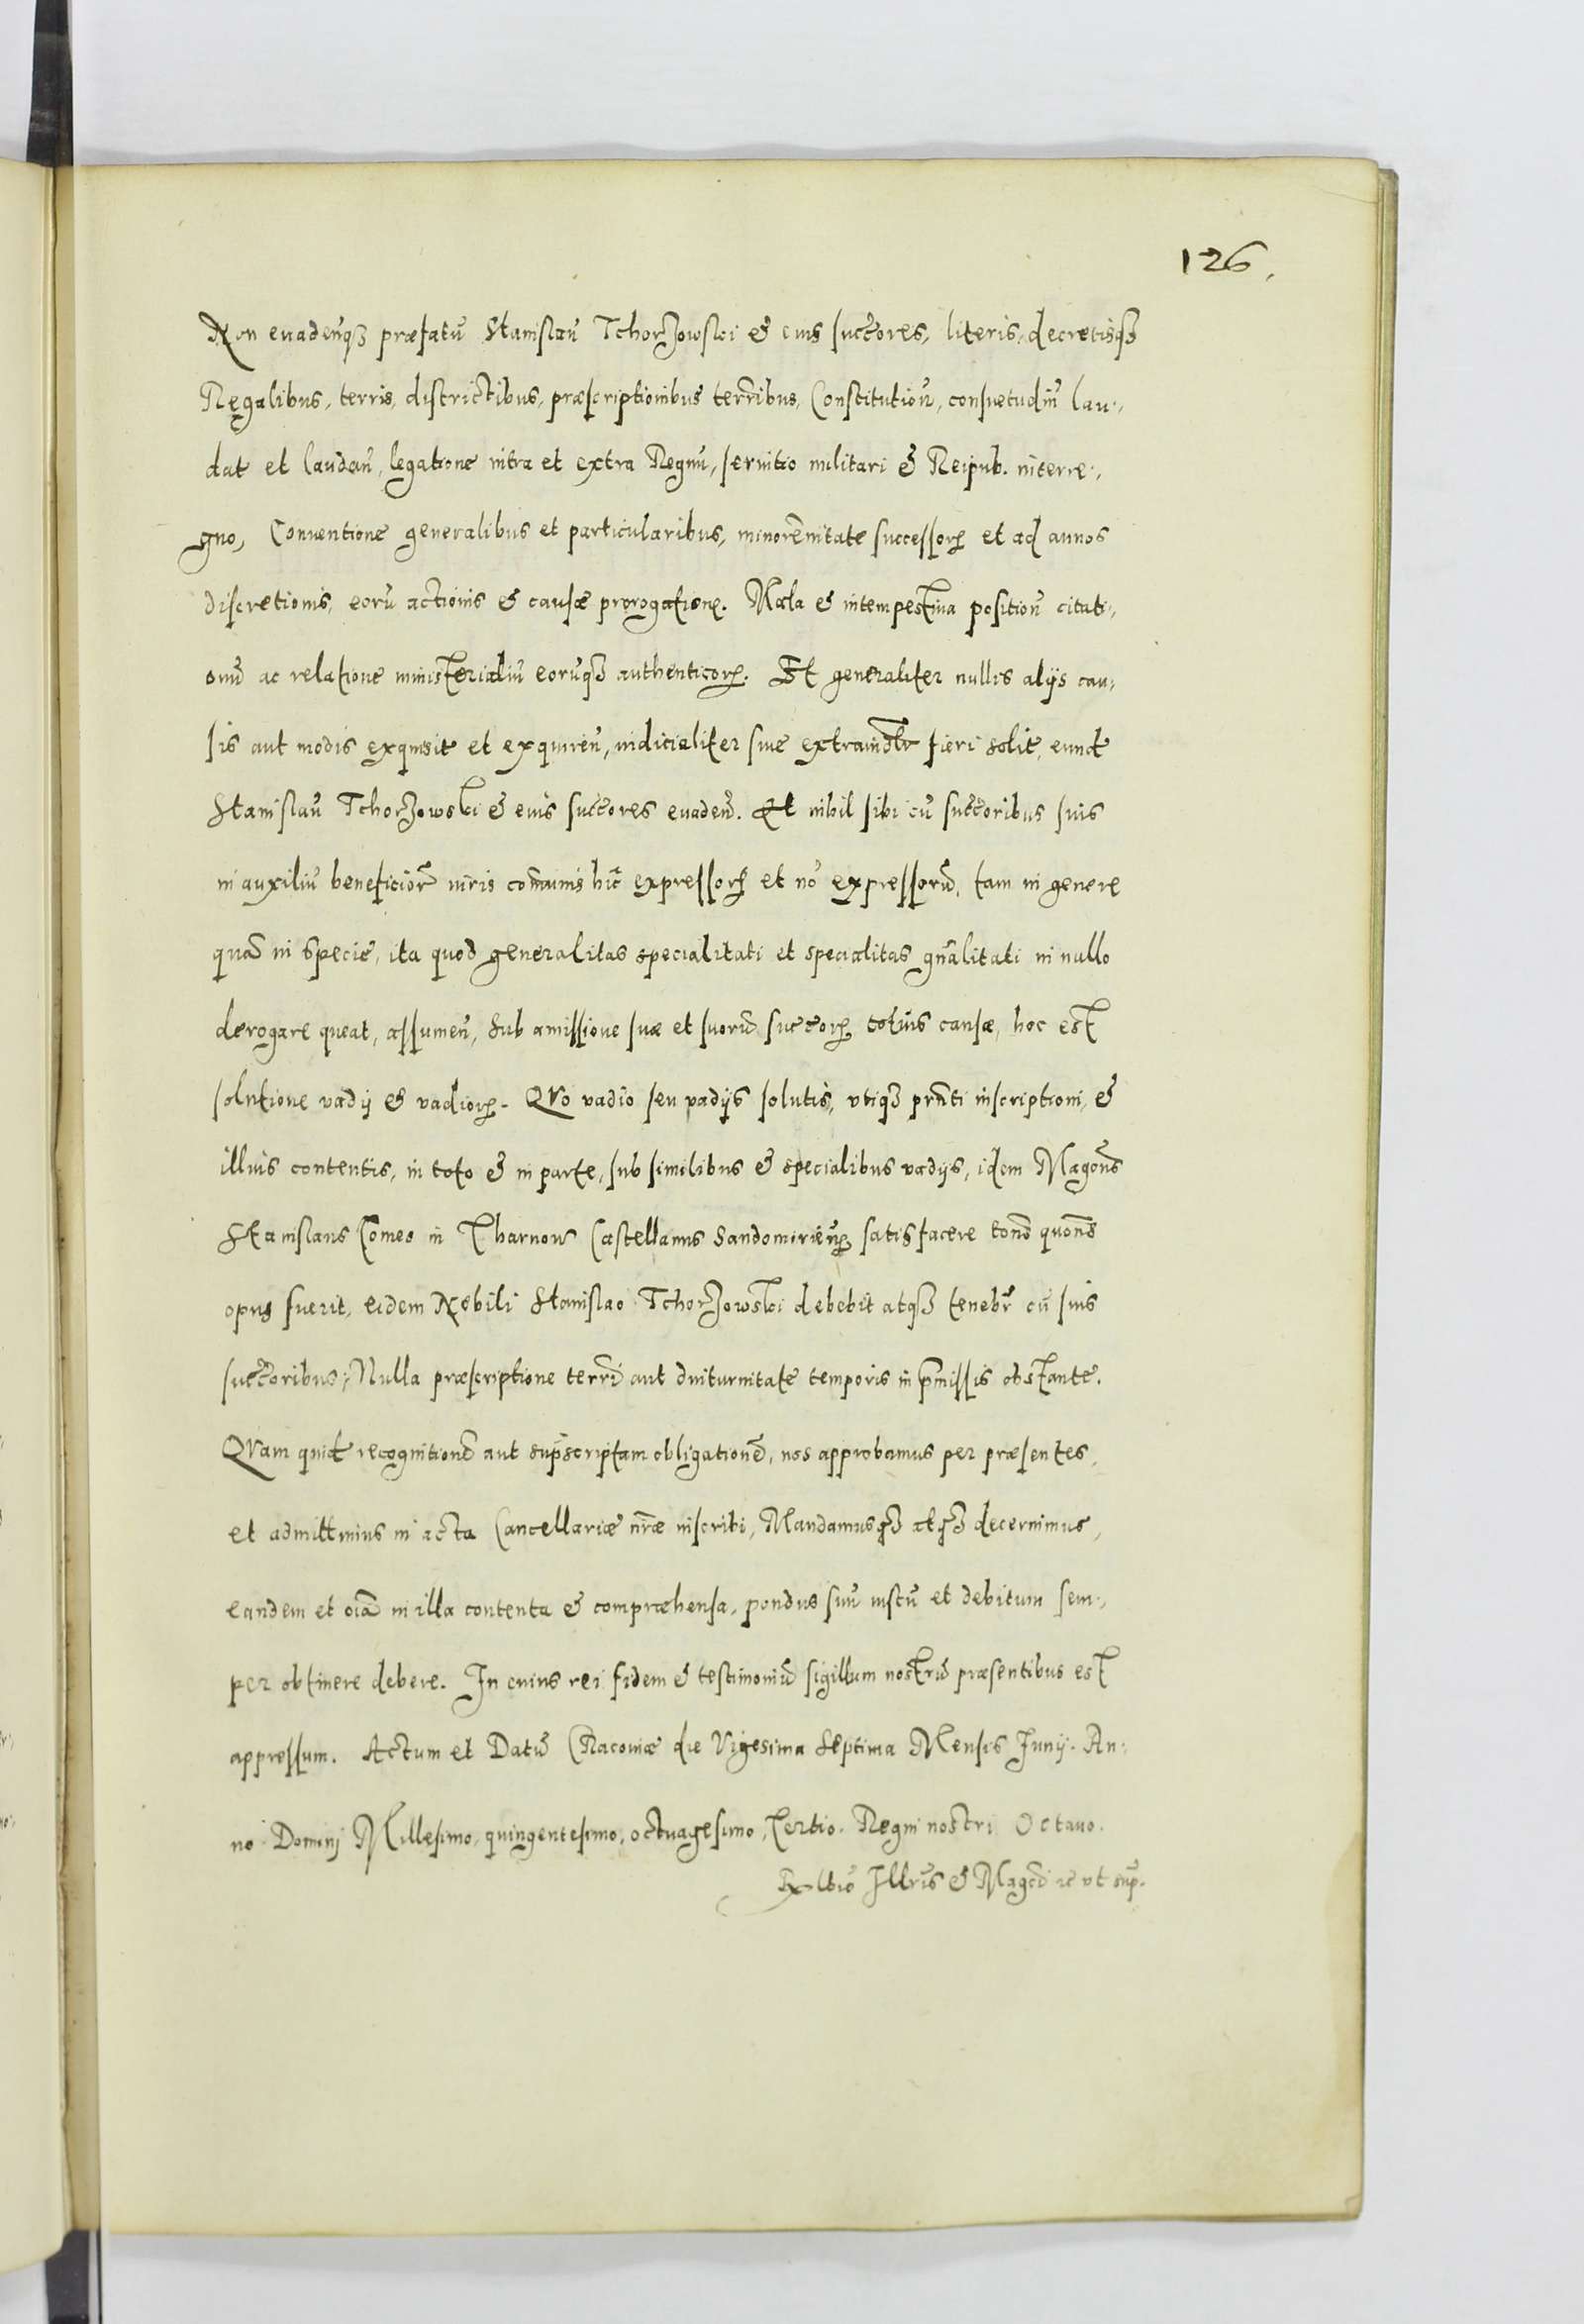 126.
Non euadenqꝫ præfatū Stanislaū Tchorzowski & eius succ̃ores, literis, decretisqꝫ
Regalibus, terris, districtibus, præscriptionibus terr̃ibus, Constitutioñ, consuetudiñ lau-
dat et laudañ, legatione intra et extra Regnū, seruitio militari & Reipub. interre-
gno, Conuentione generalibus et particularibus, minorennitate successorꝝ et ad annos
discretionis, eorū actionis & causæ prorogatione. Mala & intempestiua positioñ citati-
onū ac relatione ministerialiū eorūqꝫ authenticorꝝ. Et generaliter nullis alijs cau-
sis aut modis exquisit et exquireñ, iudicialiter siue extraiudℓr fieri solit, eunđ
Stanislaū Tchorzowski & eius succ̃ores euadeñ. Et nihil sibi cū succ̃oribus suis
in auxiliū beneficior̃ iuris com̃unis hic expressorꝝ et nō expressorū, tam in genere
quā in specie, ita quod generalitas specialitati et specialitas gñalitati in nullo
derogare queat, assumeñ, sub amissione suæ et suorū succ̃orꝝ totius causæ, hoc est
solutione vadij & vadiorꝝ. Quo vadio seu vadijs solutis, vtiqꝫ prñti inscriptioni, &
illius contentis, in toto & in parte, sub similibus & specialibus vadijs, idem Magcus
Stanislaus Comes in Tharnow Castellanus Sandomirieñ, satisfacere totiēs quotiēs
opus fuerit, eidem Nobili Stanislao Tchorzowski debebit atqꝫ tenebr̃ cū suis
succ̃oribus; Nulla præscriptione terr̃i aut diuturnitate temporis in p̃missis obstante.
Quam quiđ recognitionē aut sup̃scriptam obligationē, nos approbamus per præsentes,
et admittimus in acta Cancellariæ nr̃æ inscribi, Mandamusqꝫ atqꝫ decernimus,
eandem et oīa in illa contenta & compræhensa, pondus suū iustū et debitum sem-
per obtinere debere. In cuius rei fidem & testimoniū sigillum nostrū præsentibus est
appressum. Actum et Datū Cracouiæ die Vigesima Septima Mensis Junij. An-
no Domini Millesimo, quingentesimo, octuagesimo, Tertio. Regni nostri Octauo.
Ex lb̃io Illr̃is & Magcī ꝛc vt sup̃.